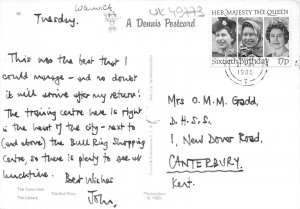 96
Warwick
UK 49773
Tuesday.
A Dennis Postcard
HER MAJESTY THE QUEEN
Sixtieth Birthday 17p
1986
This was the best that I
could manage - and no doubt
it will arrive after my return!
The training centre here is right
in the heart of the city - next to
(and above) the Bull Ring Shopping
Centre, so there is plenty to see at
lunchtime. Best Wishes
John.
The Town Hall
The Bull Ring
The Library
Mrs O.M.M. Gadd,
D.H.S.S.
1, New Dover Road,
CANTERBURY.
Kent.